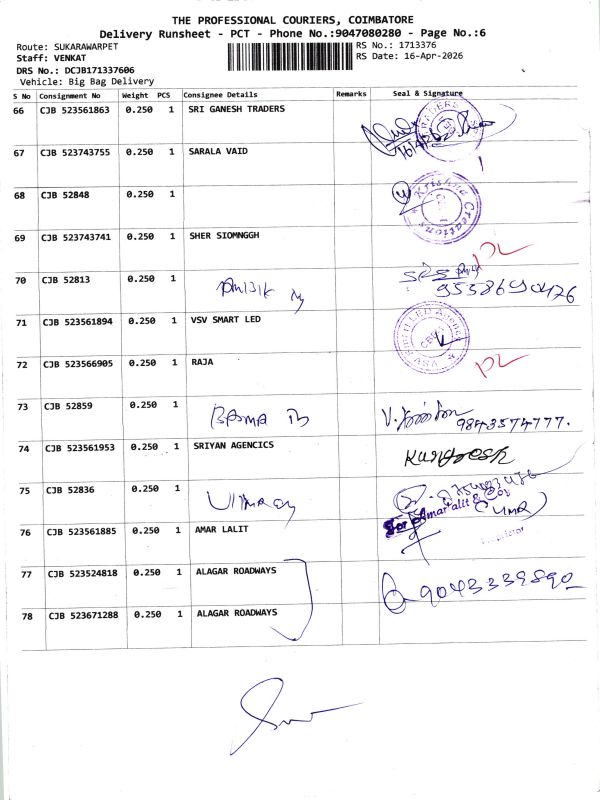 THE PROFESSIONAL COURIERS, COIMBATORE
Delivery Runsheet - PCT - Phone No.:9047080280 - Page No.:6
Route: SUKARAWARPET
RS No.: 1713376
Staff: VENKAT
RS Date: 16-Apr-2026
DRS No.: DCJB171337606
Vehicle: Big Bag Delivery
S No Consignment No Weight PCS Consignee Details Remarks Seal & Signature
66 CJB 523561863 0.250 1 SRI GANESH TRADERS
67 CJB 523743755 0.250 1 SARALA VAID
68 CJB 52848 0.250 1
Krishna Creations
69 CJB 523743741 0.250 1 SHER SIOMNGGH
70 CJB 52813 0.250 1
71 CJB 523561894 0.250 1 VSV SMART LED
72 CJB 523566905 0.250 1 RAJA
73 CJB 52859 0.250 1
9843574777.
74 CJB 523561953 0.250 1 SRIYAN AGENCICS
75 CJB 52836 0.250 1
76 CJB 523561885 0.250 1 AMAR LALIT
77 CJB 523524818 0.250 1 ALAGAR ROADWAYS
9043339890
78 CJB 523671288 0.250 1 ALAGAR ROADWAYS